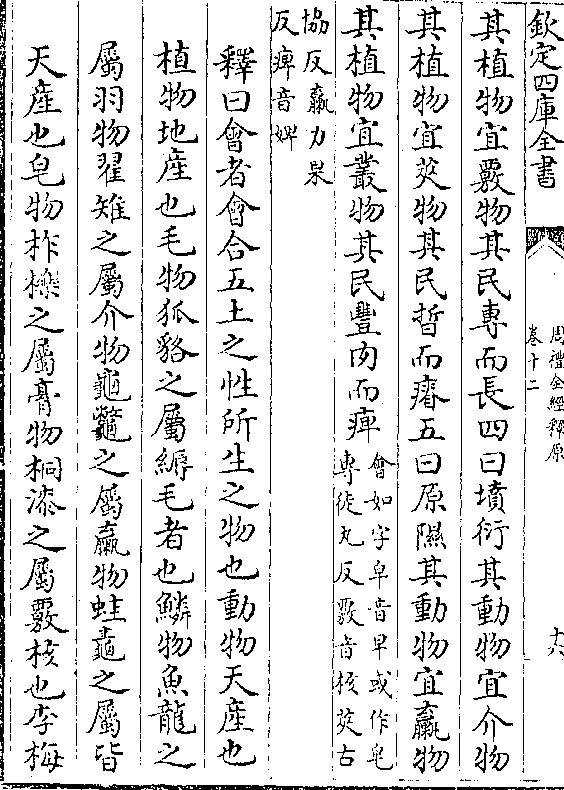 欽定四庫全書
周禮全經釋原
卷十二
十六
其植物宜覈物其民專而長四曰墳衍其動物宜介物
其植物宜莢物其民晳而瘠五曰原隰其動物宜臝物
其植物宜叢物其民豐肉而痺
會如字皁音早或作皂
專徒丸反覈音核莢古
協反臝力果
反痺音婢
釋曰會者會合五土之性所生之物也動物天産也
植物地産也毛物狐貉之屬縟毛者也鱗物魚龍之
屬羽物翟雉之屬介物龜鼈之屬臝物蛙黽之屬皆
天産也皂物柞櫟之屬膏物桐漆之屬覈核也李梅